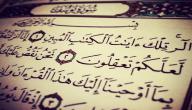 الٓرۚ تِلۡكَ ءَايَٰتُ ٱلۡكِتَٰبِ ٱلۡمُبِينِ
لَّعَلَّكُمۡ تَعۡقِلُونَ ٢ نَحۡنُ نَقُصُّ
بِمَآ أَوۡحَيۡنَآ إِلَيۡكَ هَٰذَا ٱلۡقُرۡءَانَ